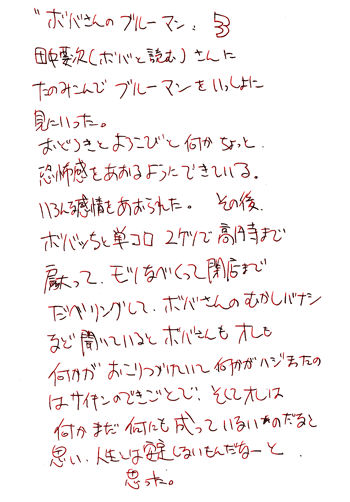 "ボバさんのブルーマン、
田中要次(ボバと読む)さんに
たのみこんでブルーマンをいっしょに
見にいった。
おどろきとよろこびと何かちょっと
恐怖感をあおるようにできている。
いろんな感情をあおられた。 その後、
ボバッちと単コロ 2ケツで高円寺まで
戻って、モツなべくって閉店まで
だべリングして、ボバさんのむかしバナシ
など聞いているとボバさんもオレも
何かがおこりつづけていて何かがハジまったの
はサイキンのできごとで、そしてオレは
何かまだ何にも成っていないものだなと
思い、人生とは安定しないもんだなーと
思った。